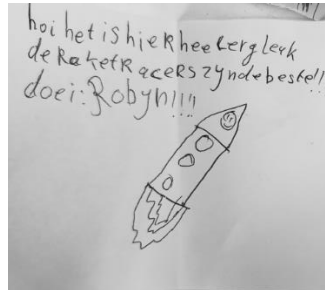 hoi het is hier heel erg leuk
de Raket Racers zyn de beste!!
doei: Robyn!!!!